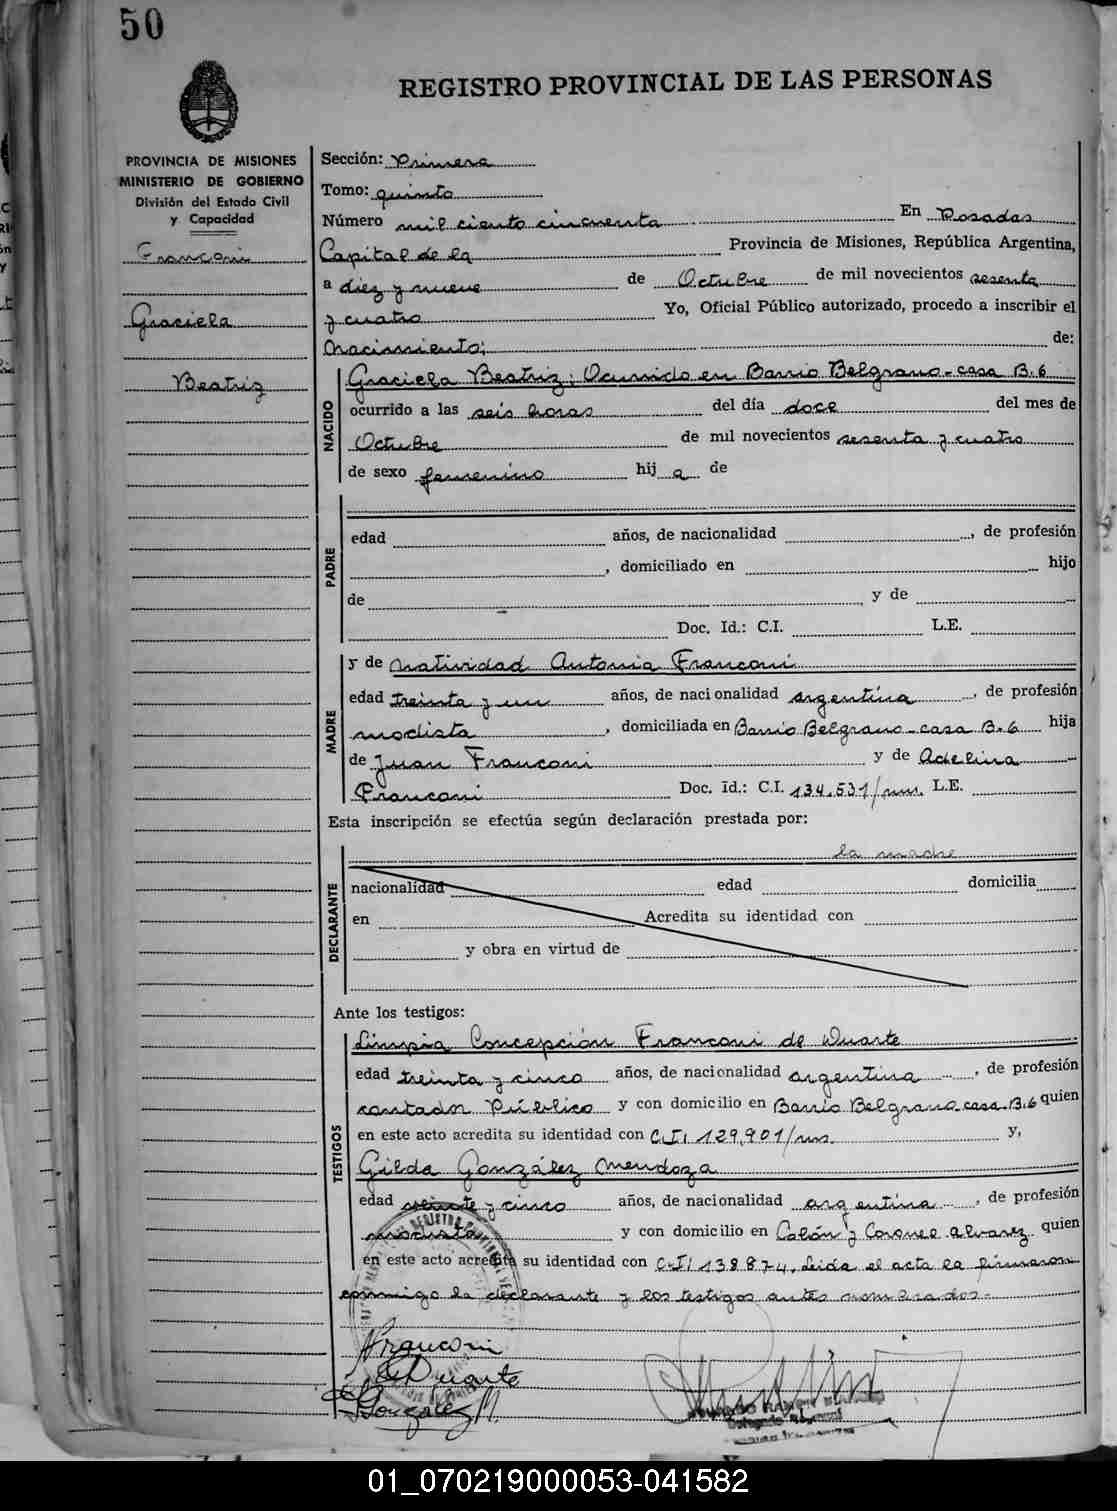 50
REGISTRO PROVINCIAL DE LAS PERSONAS
PROVINCIA DE MISIONES
MINISTERIO DE GOBIERNO
División del Estado Civil
y Capacidad
Franconi
Graciela
Beatriz
Sección: Primera
Tomo: quinto
Número mil ciento cincuenta En Posadas
Capital de la Provincia de Misiones, República Argentina,
a diez y nueve de Octubre de mil novecientos sesenta
y cuatro Yo, Oficial Público autorizado, procedo a inscribir el
Nacimiento; de:
NACIDO
Graciela Beatriz; Ocurrido en Barrio Belgrano - casa B.6
ocurrido a las seis horas del día doce del mes de
Octubre de mil novecientos sesenta y cuatro
de sexo femenino hij a de
PADRE
edad años, de nacionalidad , de profesión
, domiciliado en hijo
de y de
Doc. Id.: C.I. L.E.
MADRE
y de Natividad Antonia Franconi
edad treinta y un años, de nacionalidad argentina , de profesión
modista , domiciliada en Barrio Belgrano - casa B.6 hija
de Juan Franconi y de Adelina
Franconi Doc. Id.: C.I. 134.531/ms. L.E.
Esta inscripción se efectúa según declaración prestada por:
la madre
DECLARANTE
nacionalidad edad domicilia
en Acredita su identidad con
y obra en virtud de
Ante los testigos:
TESTIGOS
Limpia Concepción Franconi de Duarte
edad treinta y cinco años, de nacionalidad argentina , de profesión
contador Público y con domicilio en Barrio Belgrano casa B.6 quien
en este acto acredita su identidad con C.I. 129.901/ms. y,
Gilda González Mendoza
edad veinte y cinco años, de nacionalidad argentina , de profesión
modista y con domicilio en Colón y Coronel Alvarez quien
en este acto acredita su identidad con C.I. 138874. Leida el acta la firmaron
conmigo la declarante y los testigos antes nombrados.-
Franconi
Duarte
González M.
01_070219000053-041582